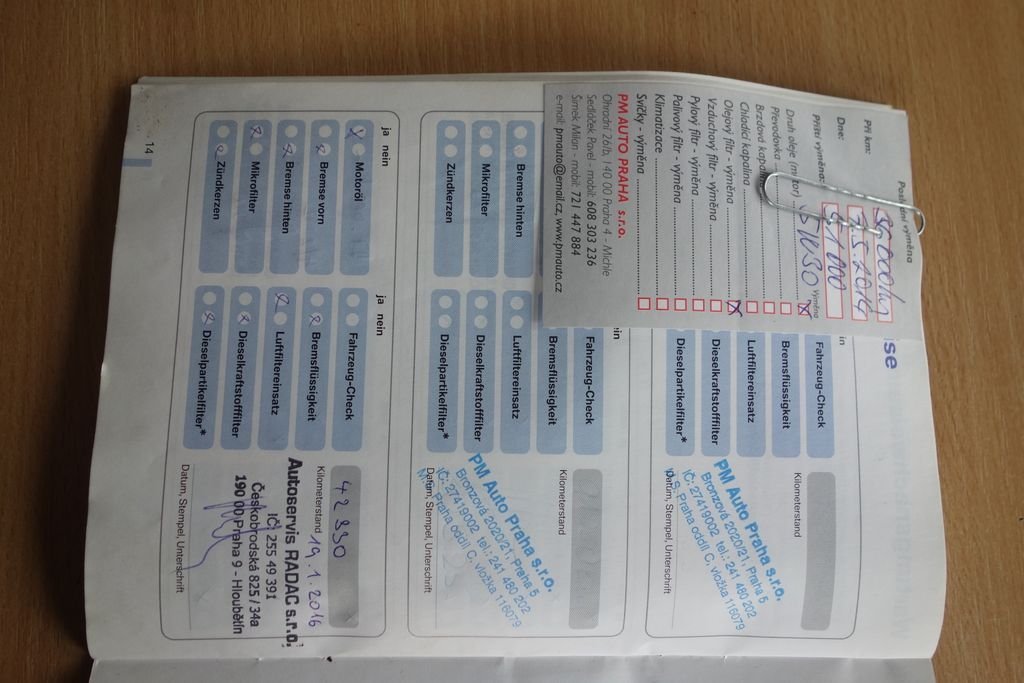 Poslední výměna
Při km: 90000 km
Dne: 7.5.2014
Příští výměna:
Výměna
Druh oleje (motor) 5W30
Převodovka
Brzdová kapalina
Chladící kapalina
Olejový filtr - výměna
Vzduchový filtr - výměna
Pylový filtr - výměna
Palivový filtr - výměna
Klimatizace
Svíčky - výměna
PM AUTO PRAHA s.r.o.
Ohradní 26/b, 140 00 Praha 4 - Michle
Sedláček Pavel - mobil: 608 303 236
Šimek Milan - mobil: 721 447 884
e-mail: pmauto@email.cz, www.pmauto.cz
se
in
Fahrzeug-Check
Bremsflüssigkeit
Luftfiltereinsatz
Dieselkraftstofffilter
Dieselpartikelfilter*
Kilometerstand
PM Auto Praha s.r.o.
Bronzová 2020/21, Praha 5
IČ: 27419002 tel.: 241 480 202
M.S. Praha oddíl C, vložka 116079
Datum, Stempel, Unterschrift
Bremse hinten
Mikrofilter
Zündkerzen
ein
Fahrzeug-Check
Bremsflüssigkeit
Luftfiltereinsatz
Dieselkraftstofffilter
Dieselpartikelfilter*
Kilometerstand
PM Auto Praha s.r.o.
Bronzová 2020/21, Praha 5
IČ: 27419002 tel.: 241 480 202
M.S. Praha oddíl C, vložka 116079
Datum, Stempel, Unterschrift
ja nein
Motoröl
Bremse vorn
Bremse hinten
Mikrofilter
Zündkerzen
ja nein
Fahrzeug-Check
Bremsflüssigkeit
Luftfiltereinsatz
Dieselkraftstofffilter
Dieselpartikelfilter*
42 930
Kilometerstand
19.1.2016
Autoservis RADAC s.r.o.
IČ: 255 49 391
Českobrodská 825 / 34a
190 00 Praha 9 - Hloubětín
Datum, Stempel, Unterschrift
14